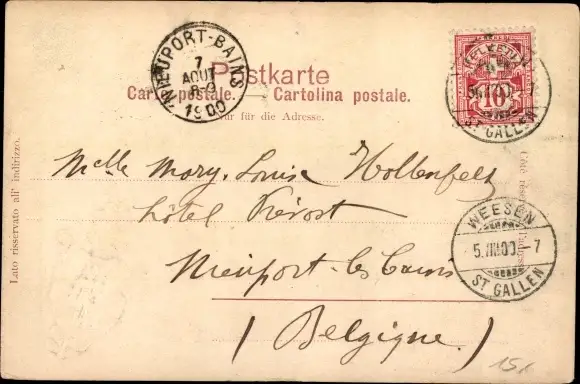 NIEUPORT-BAINS
7
AOUT
8-9
1900
Postkarte
Carte postale. Cartolina postale.
Nur für die Adresse.
10
ST GALLEN
Melle Mary-Louise Hollenfeltz
hôtel Prévost
Nieuport-les bains
(Belgique)
WEESEN
5.VIII.00.-7
ST GALLEN
Lato riservato all' indirizzo.
Côté réservé à l'adresse.
15,-